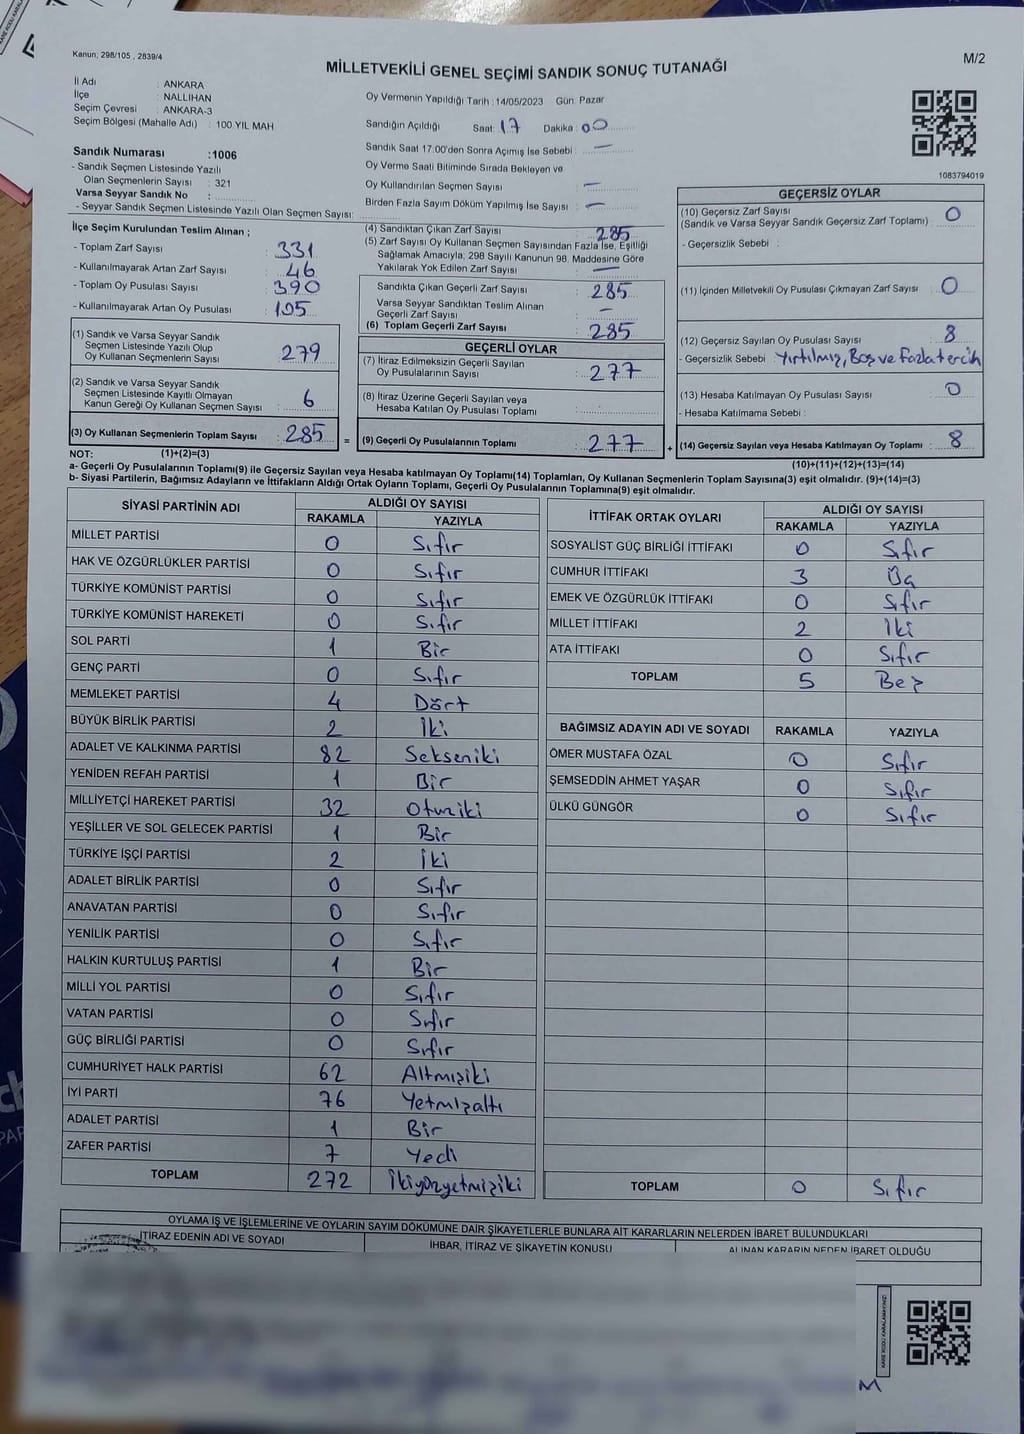 Kanun; 298/105 , 2839/4
M/2
MİLLETVEKİLİ GENEL SEÇİMİ SANDIK SONUÇ TUTANAĞI
İl Adı : ANKARA
İlçe : NALLIHAN
Seçim Çevresi : ANKARA-3
Seçim Bölgesi (Mahalle Adı) : 100.YIL MAH
Sandık Numarası :1006
- Sandık Seçmen Listesinde Yazılı
Olan Seçmenlerin Sayısı : 321
Varsa Seyyar Sandık No :
- Seyyar Sandık Seçmen Listesinde Yazılı Olan Seçmen Sayısı:
Oy Vermenin Yapıldığı Tarih : 14/05/2023 Gün: Pazar
Sandığın Açıldığı Saat: 17 Dakika : 00
Sandık Saat 17:00'den Sonra Açımış İse Sebebi : —
Oy Verme Saati Bitiminde Sırada Bekleyen ve
Oy Kullandırılan Seçmen Sayısı : —
Birden Fazla Sayım Döküm Yapılmış İse Sayısı : —
1083794019
İlçe Seçim Kurulundan Teslim Alınan ;
- Toplam Zarf Sayısı : 331
- Kullanılmayarak Artan Zarf Sayısı : 46
- Toplam Oy Pusulası Sayısı : 390
- Kullanılmayarak Artan Oy Pusulası : 105
(1) Sandık ve Varsa Seyyar Sandık
Seçmen Listesinde Yazılı Olup
Oy Kullanan Seçmenlerin Sayısı : 279
(2) Sandık ve Varsa Seyyar Sandık
Seçmen Listesinde Kayıtlı Olmayan
Kanun Gereği Oy Kullanan Seçmen Sayısı : 6
(3) Oy Kullanan Seçmenlerin Toplam Sayısı : 285 =
(1)+(2)=(3)
(4) Sandıktan Çıkan Zarf Sayısı : 285
(5) Zarf Sayısı Oy Kullanan Seçmen Sayısından Fazla İse, Eşitliği
Sağlamak Amacıyla, 298 Sayılı Kanunun 98. Maddesine Göre
Yakılarak Yok Edilen Zarf Sayısı : —
Sandıkta Çıkan Geçerli Zarf Sayısı : 285
Varsa Seyyar Sandıktan Teslim Alınan
Geçerli Zarf Sayısı : —
(6) Toplam Geçerli Zarf Sayısı : 285
GEÇERLİ OYLAR
(7) İtiraz Edilmeksizin Geçerli Sayılan
Oy Pusulalarının Sayısı : 277
(8) İtiraz Üzerine Geçerli Sayılan veya
Hesaba Katılan Oy Pusulası Toplamı :
(9) Geçerli Oy Pusulalarının Toplamı : 277 +
GEÇERSİZ OYLAR
(10) Geçersiz Zarf Sayısı : 0
(Sandık ve Varsa Seyyar Sandık Geçersiz Zarf Toplamı)
- Geçersizlik Sebebi :
(11) İçinden Milletvekili Oy Pusulası Çıkmayan Zarf Sayısı : 0
(12) Geçersiz Sayılan Oy Pusulası Sayısı : 8
- Geçersizlik Sebebi : Yırtılmış, Boş ve Fazla tercih
(13) Hesaba Katılmayan Oy Pusulası Sayısı : 0
- Hesaba Katılmama Sebebi :
(14) Geçersiz Sayılan veya Hesaba Katılmayan Oy Toplamı : 8
(10)+(11)+(12)+(13)=(14)
NOT:
a- Geçerli Oy Pusulalarının Toplamı(9) ile Geçersiz Sayılan veya Hesaba katılmayan Oy Toplamı(14) Toplamları, Oy Kullanan Seçmenlerin Toplam Sayısına(3) eşit olmalıdır. (9)+(14)=(3)
b- Siyasi Partilerin, Bağımsız Adayların ve İttifakların Aldığı Ortak Oyların Toplamı, Geçerli Oy Pusulalarının Toplamına(9) eşit olmalıdır.
SİYASİ PARTİNİN ADI ALDIĞI OY SAYISI
RAKAMLA YAZIYLA
MİLLET PARTİSİ 0 Sıfır
HAK VE ÖZGÜRLÜKLER PARTİSİ 0 Sıfır
TÜRKİYE KOMÜNİST PARTİSİ 0 Sıfır
TÜRKİYE KOMÜNİST HAREKETİ 0 Sıfır
SOL PARTİ 1 Bir
GENÇ PARTİ 0 Sıfır
MEMLEKET PARTİSİ 4 Dört
BÜYÜK BİRLİK PARTİSİ 2 İki
ADALET VE KALKINMA PARTİSİ 82 Sekseniki
YENİDEN REFAH PARTİSİ 1 Bir
MİLLİYETÇİ HAREKET PARTİSİ 32 Otuziki
YEŞİLLER VE SOL GELECEK PARTİSİ 1 Bir
TÜRKİYE İŞÇİ PARTİSİ 2 İki
ADALET BİRLİK PARTİSİ 0 Sıfır
ANAVATAN PARTİSİ 0 Sıfır
YENİLİK PARTİSİ 0 Sıfır
HALKIN KURTULUŞ PARTİSİ 1 Bir
MİLLİ YOL PARTİSİ 0 Sıfır
VATAN PARTİSİ 0 Sıfır
GÜÇ BİRLİĞİ PARTİSİ 0 Sıfır
CUMHURİYET HALK PARTİSİ 62 Altmışiki
İYİ PARTİ 76 Yetmişaltı
ADALET PARTİSİ 1 Bir
ZAFER PARTİSİ 7 Yedi
TOPLAM 272 İkiyüzyetmişiki
İTTİFAK ORTAK OYLARI ALDIĞI OY SAYISI
RAKAMLA YAZIYLA
SOSYALİST GÜÇ BİRLİĞİ İTTİFAKI 0 Sıfır
CUMHUR İTTİFAKI 3 Üç
EMEK VE ÖZGÜRLÜK İTTİFAKI 0 Sıfır
MİLLET İTTİFAKI 2 İki
ATA İTTİFAKI 0 Sıfır
TOPLAM 5 Beş
BAĞIMSIZ ADAYIN ADI VE SOYADI RAKAMLA YAZIYLA
ÖMER MUSTAFA ÖZAL 0 Sıfır
ŞEMSEDDİN AHMET YAŞAR 0 Sıfır
ÜLKÜ GÜNGÖR 0 Sıfır
TOPLAM 0 Sıfır
OYLAMA İŞ VE İŞLEMLERİNE VE OYLARIN SAYIM DÖKÜMÜNE DAİR ŞİKAYETLERLE BUNLARA AİT KARARLARIN NELERDEN İBARET BULUNDUKLARI
İTİRAZ EDENİN ADI VE SOYADI İHBAR, İTİRAZ VE ŞİKAYETİN KONUSU ALINAN KARARIN NEDEN İBARET OLDUĞU
KARE KODU KARALAMAYINIZ!